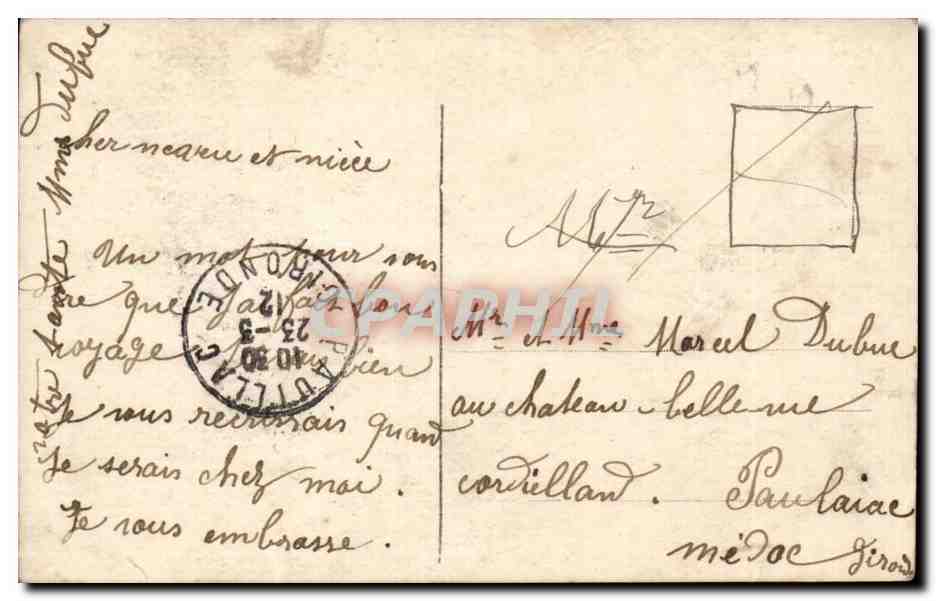 cher neveu et nièce
Un mot pour vous
dire que J'ai fait bons
voyage bien
Je vous recrirais quand
Je serais chez moi.
Je vous embrasse.
votre tante Mme Dubue
PAUILLAC
GIRONDE
10 30
23 - 3
12
CPAPHIL
Mr
Mr et Mme Marcel Dubue
au chateau belle-vue
cordilland. Paulaiac
médoc Girond